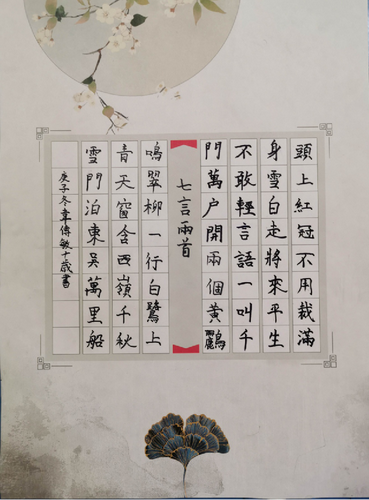 頭上紅冠不用裁滿
身雪白走將來平生
不敢輕言語一叫千
門萬户開兩個黃鸝
七言兩首
鳴翠柳一行白鷺上
青天窗含西嶺千秋
雪門泊東吳萬里船
庚子冬章傳敏十歲書